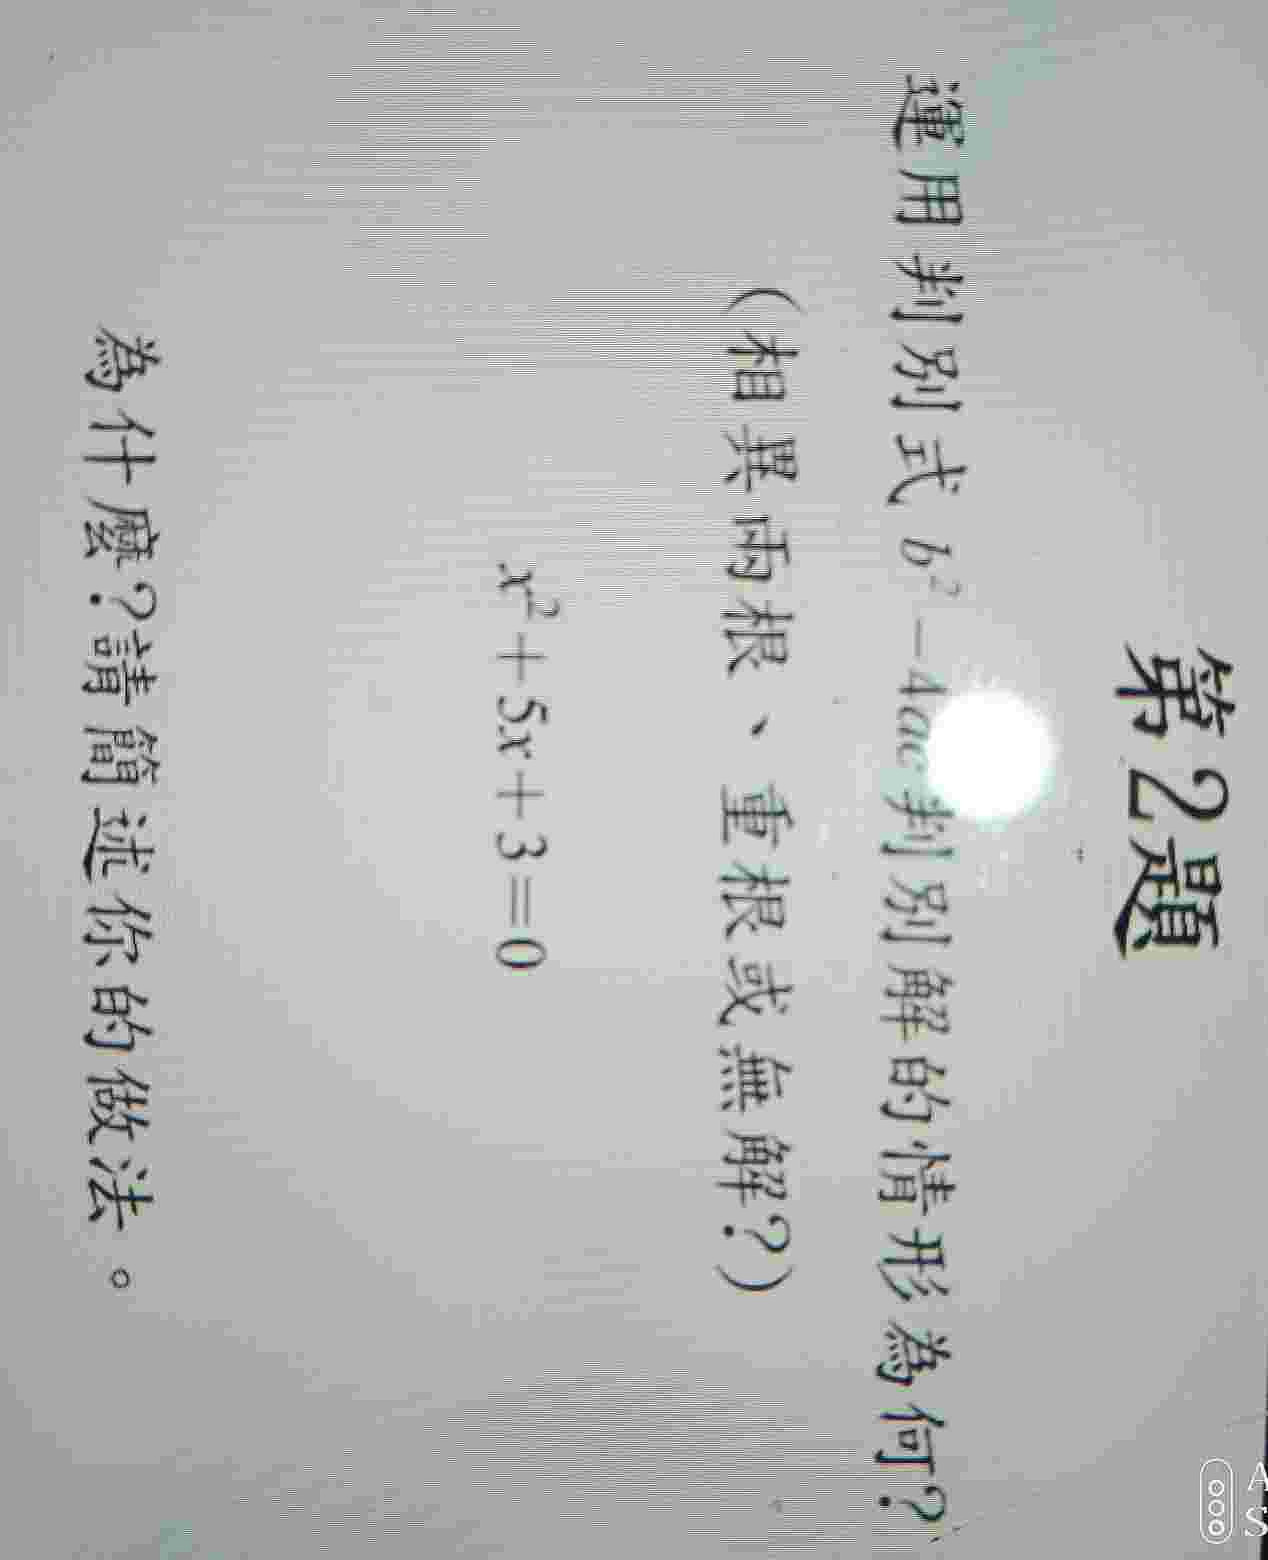 第2題
運用判別式 b²－4ac判別解的情形為何?
(相異兩根、重根或無解?)
x²＋5x＋3＝0
為什麼?請簡述你的做法。